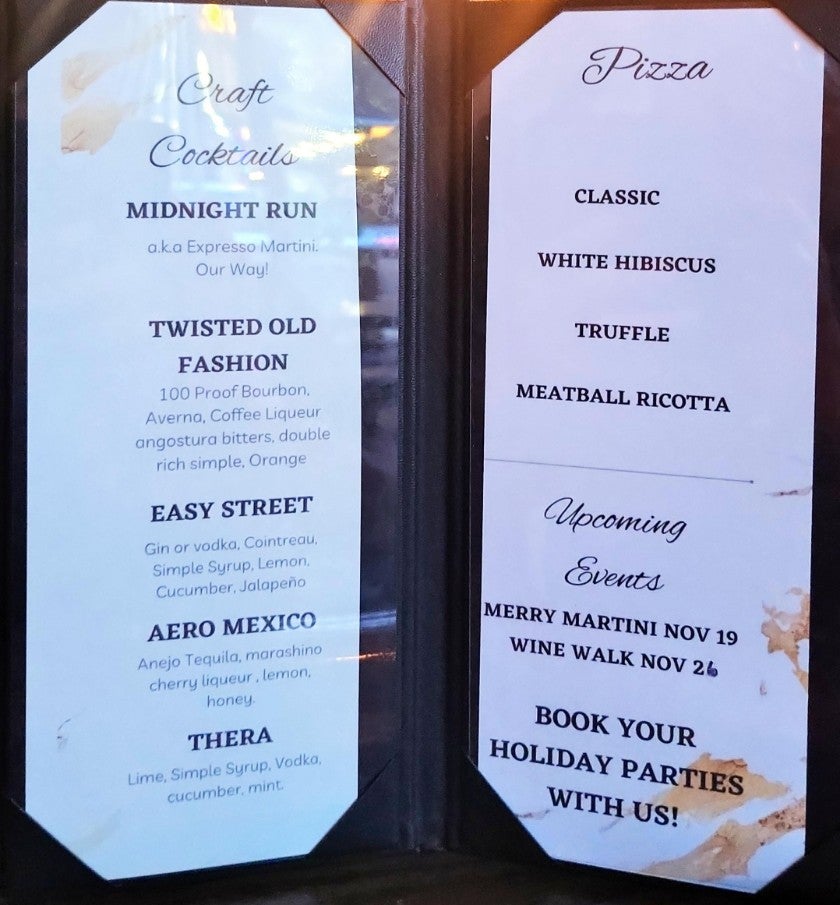 Craft
Cocktails
MIDNIGHT RUN
a.k.a Expresso Martini.
Our Way!
TWISTED OLD
FASHION
100 Proof Bourbon,
Averna, Coffee Liqueur
angostura bitters, double
rich simple, Orange
EASY STREET
Gin or vodka, Cointreau,
Simple Syrup, Lemon,
Cucumber, Jalapeño
AERO MEXICO
Anejo Tequila, marashino
cherry liqueur , lemon,
honey.
THERA
Lime, Simple Syrup, Vodka,
cucumber, mint.
Pizza
CLASSIC
WHITE HIBISCUS
TRUFFLE
MEATBALL RICOTTA
Upcoming
Events
MERRY MARTINI NOV 19
WINE WALK NOV
BOOK YOUR
HOLIDAY PARTIES
WITH US!